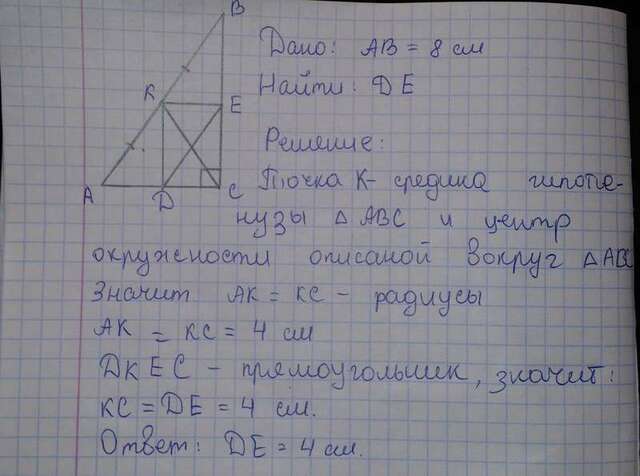 B
Дано: AB = 8 см
Найти: DE
K
E
Решение:
A
D
C
Точка K - средина гипоте-
нузы △ ABC и центр
окружности описаной вокруг △ABC
Значит AK = KC - радиусы
AK = KC = 4 см
DKEC - прямоугольник, значит:
KC = DE = 4 см.
Ответ: DE = 4 см.